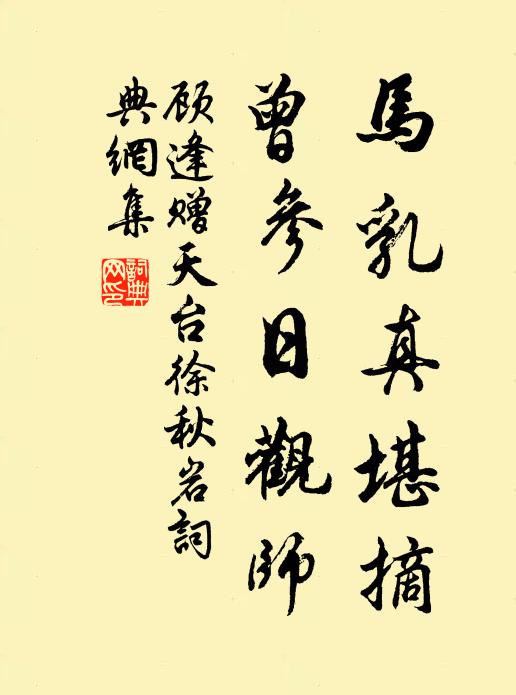 馬乳真堪摘
曾參日觀師
顾逢赠天台徐秋岩詞
典網集
詞典
网印